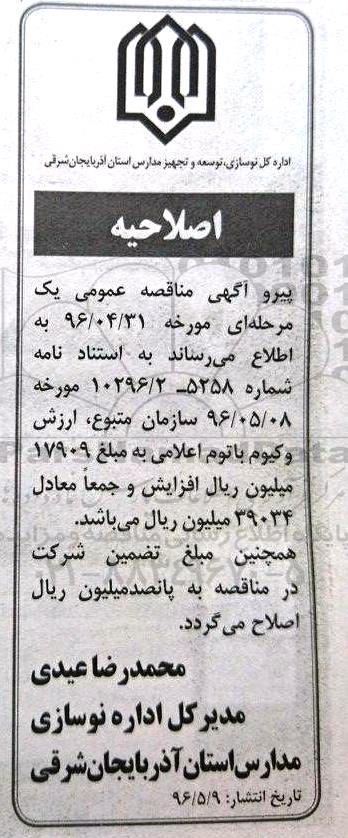 اداره کل نوسازی، توسعه و تجهیز مدارس استان آذربایجان شرقی
اصلاحیه
پیرو آگهی مناقصه عمومی یک
مرحله‌ای مورخه ۹۶/۰۴/۳۱ به
اطلاع می‌رساند به استناد نامه
شماره ۵۲۵۸ـ ۱۰۲۹۶/۲ مورخه
۹۶/۰۵/۰۸ سازمان متبوع، ارزش
وکیوم باتوم اعلامی به مبلغ ۱۷۹۰۹
میلیون ریال افزایش و جمعاً معادل
۳۹۰۳۴ میلیون ریال می‌باشد.
همچنین مبلغ تضمین شرکت
در مناقصه به پانصدمیلیون ریال
اصلاح می‌گردد.
محمدرضا عیدی
مدیر کل اداره نوسازی
مدارس استان آذربایجان شرقی
تاریخ انتشار: ۹۶/۵/۹